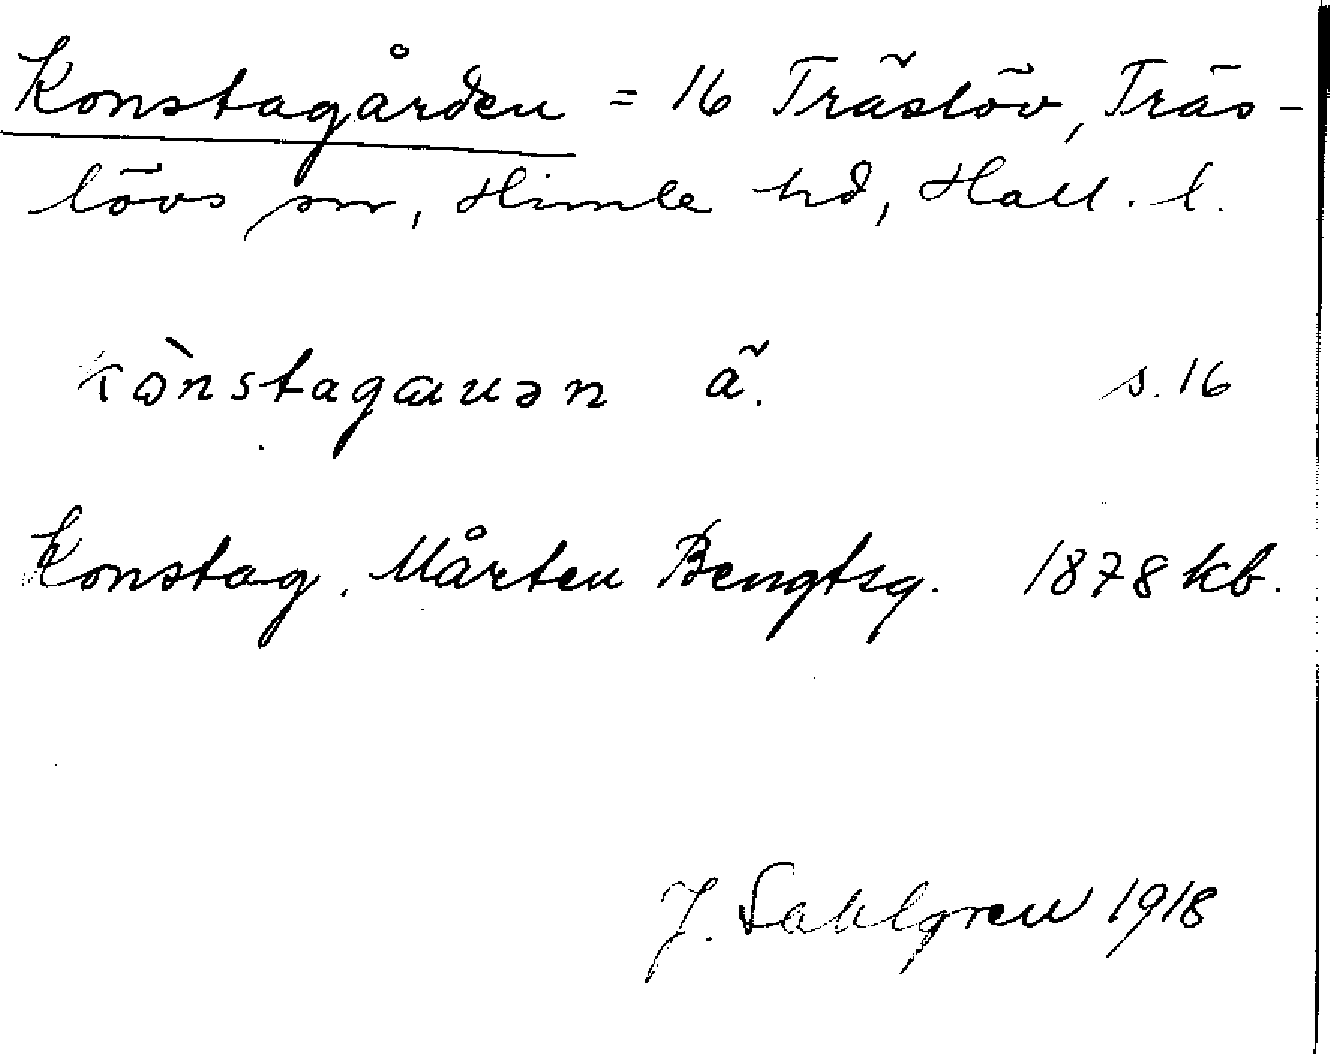 Konstagården = 16 Träslöv, Träs-
lövs sn, Himle hd, Hall. l.
kònstagɑuən ä. s. 16
Konstag. Mårten Bengtsg. 1878 kb.
J. Sahlgren 1918